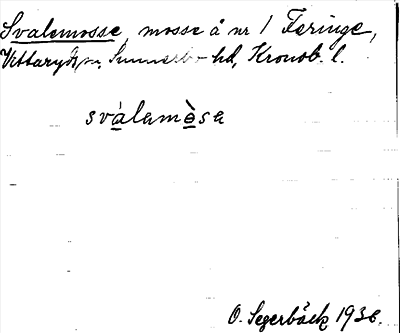 Svalemosse, mosse å nr 1 Feringe,
Vittaryds sn, Sunnerbo hd, Kronob. l.
svȧlamȯ̀sa
O. Segerbäck 1936.